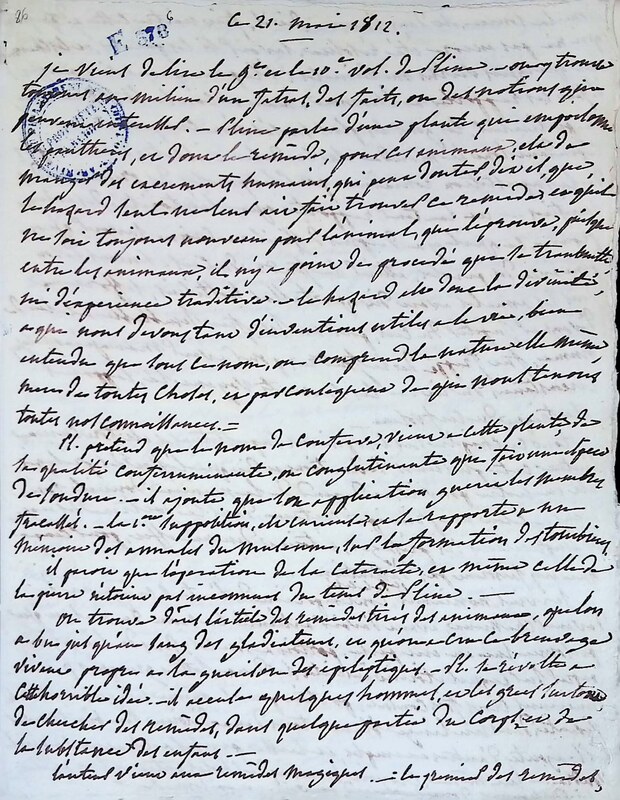 86
E 378 6
Ce 21. Mai 1812.
je viens de lire le 9e. et le 10e. vol. de Pline. – on y trouve
toujours au milieu d'un fatras, des faits, ou des notions qui
peuvent interesser. – Pline parle d'une plante qui empoisonne
les pantheres, et dont le remède, pour ces animaux, est de
manger des excrements humains, qui peut douter, dit il, que
le hazard seul ne leur ait fait trouver ce remède, et qu'il
ne soit toujours nouveau pour l'animal, qui l'éprouve, puisque
entre les animaux, il n'y a point de procédé qui se transmette
ni d'experience traditive. – le hazard est donc la divinité,
a qui nous devons tant d'inventions utiles a la vie, bien
entendu que sous ce nom, on comprend la nature elle même
mere de toutes choses, et par conséquent de qui nous tenons
toutes nos connaissances. =
Pl. prétend que le nom de conferva, vient a cette plante de
sa qualité conferruminante, ou conglutinante que fait une espece
de soudure. – il ajoute que son application, guerit les membres
fracassés. – la 1ere supposition, est curieuse, et se rapporte a un
mémoire des annales du museum, sur la formation des
il paroit que l'operation de la cataracte, et même celle de
la pierre n'étoient pas inconnues du tems de Pline. —
On trouve dans l'article des remèdes tirés des animaux, que l'on
a bu jusqu'au sang des gladiateurs, et qu'on a cru ce breuvage
vivant propre a la guerison des epileptiques. – Pl. se révolte a
cette horrible idée. – il accuse quelques hommes, et les grecs surtout
de chercher des remèdes, dans quelque partie du corps, et de
la substance des enfans. —
l'auteur vient aux remèdes magiques. – le premier des remèdes,